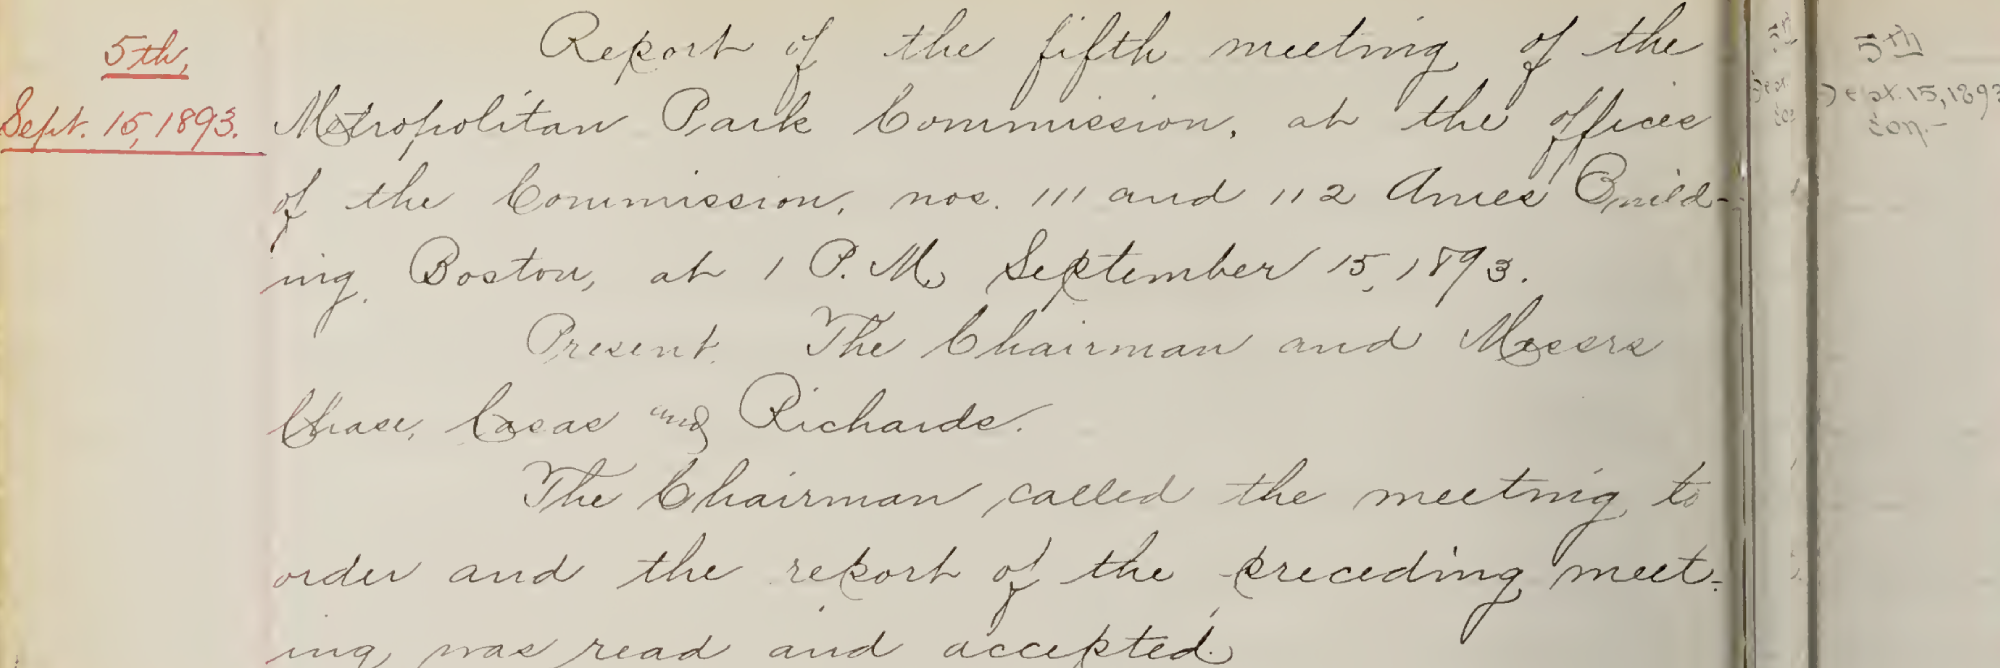 5th,
Sept. 15, 1893.
Report of the fifth meeting of the
Metropolitan Park Commission, at the offices
of the Commission, nos. 111 and 112 Ames Build-
ing, Boston, at 1 P.M. September 15, 1893.
Present. The Chairman and Messrs
Chase, Casas and Richards.
The Chairman called the meeting to
order and the report of the preceding meet-
ing was read and accepted.
5th
Sept. 15, 1893
Con.-